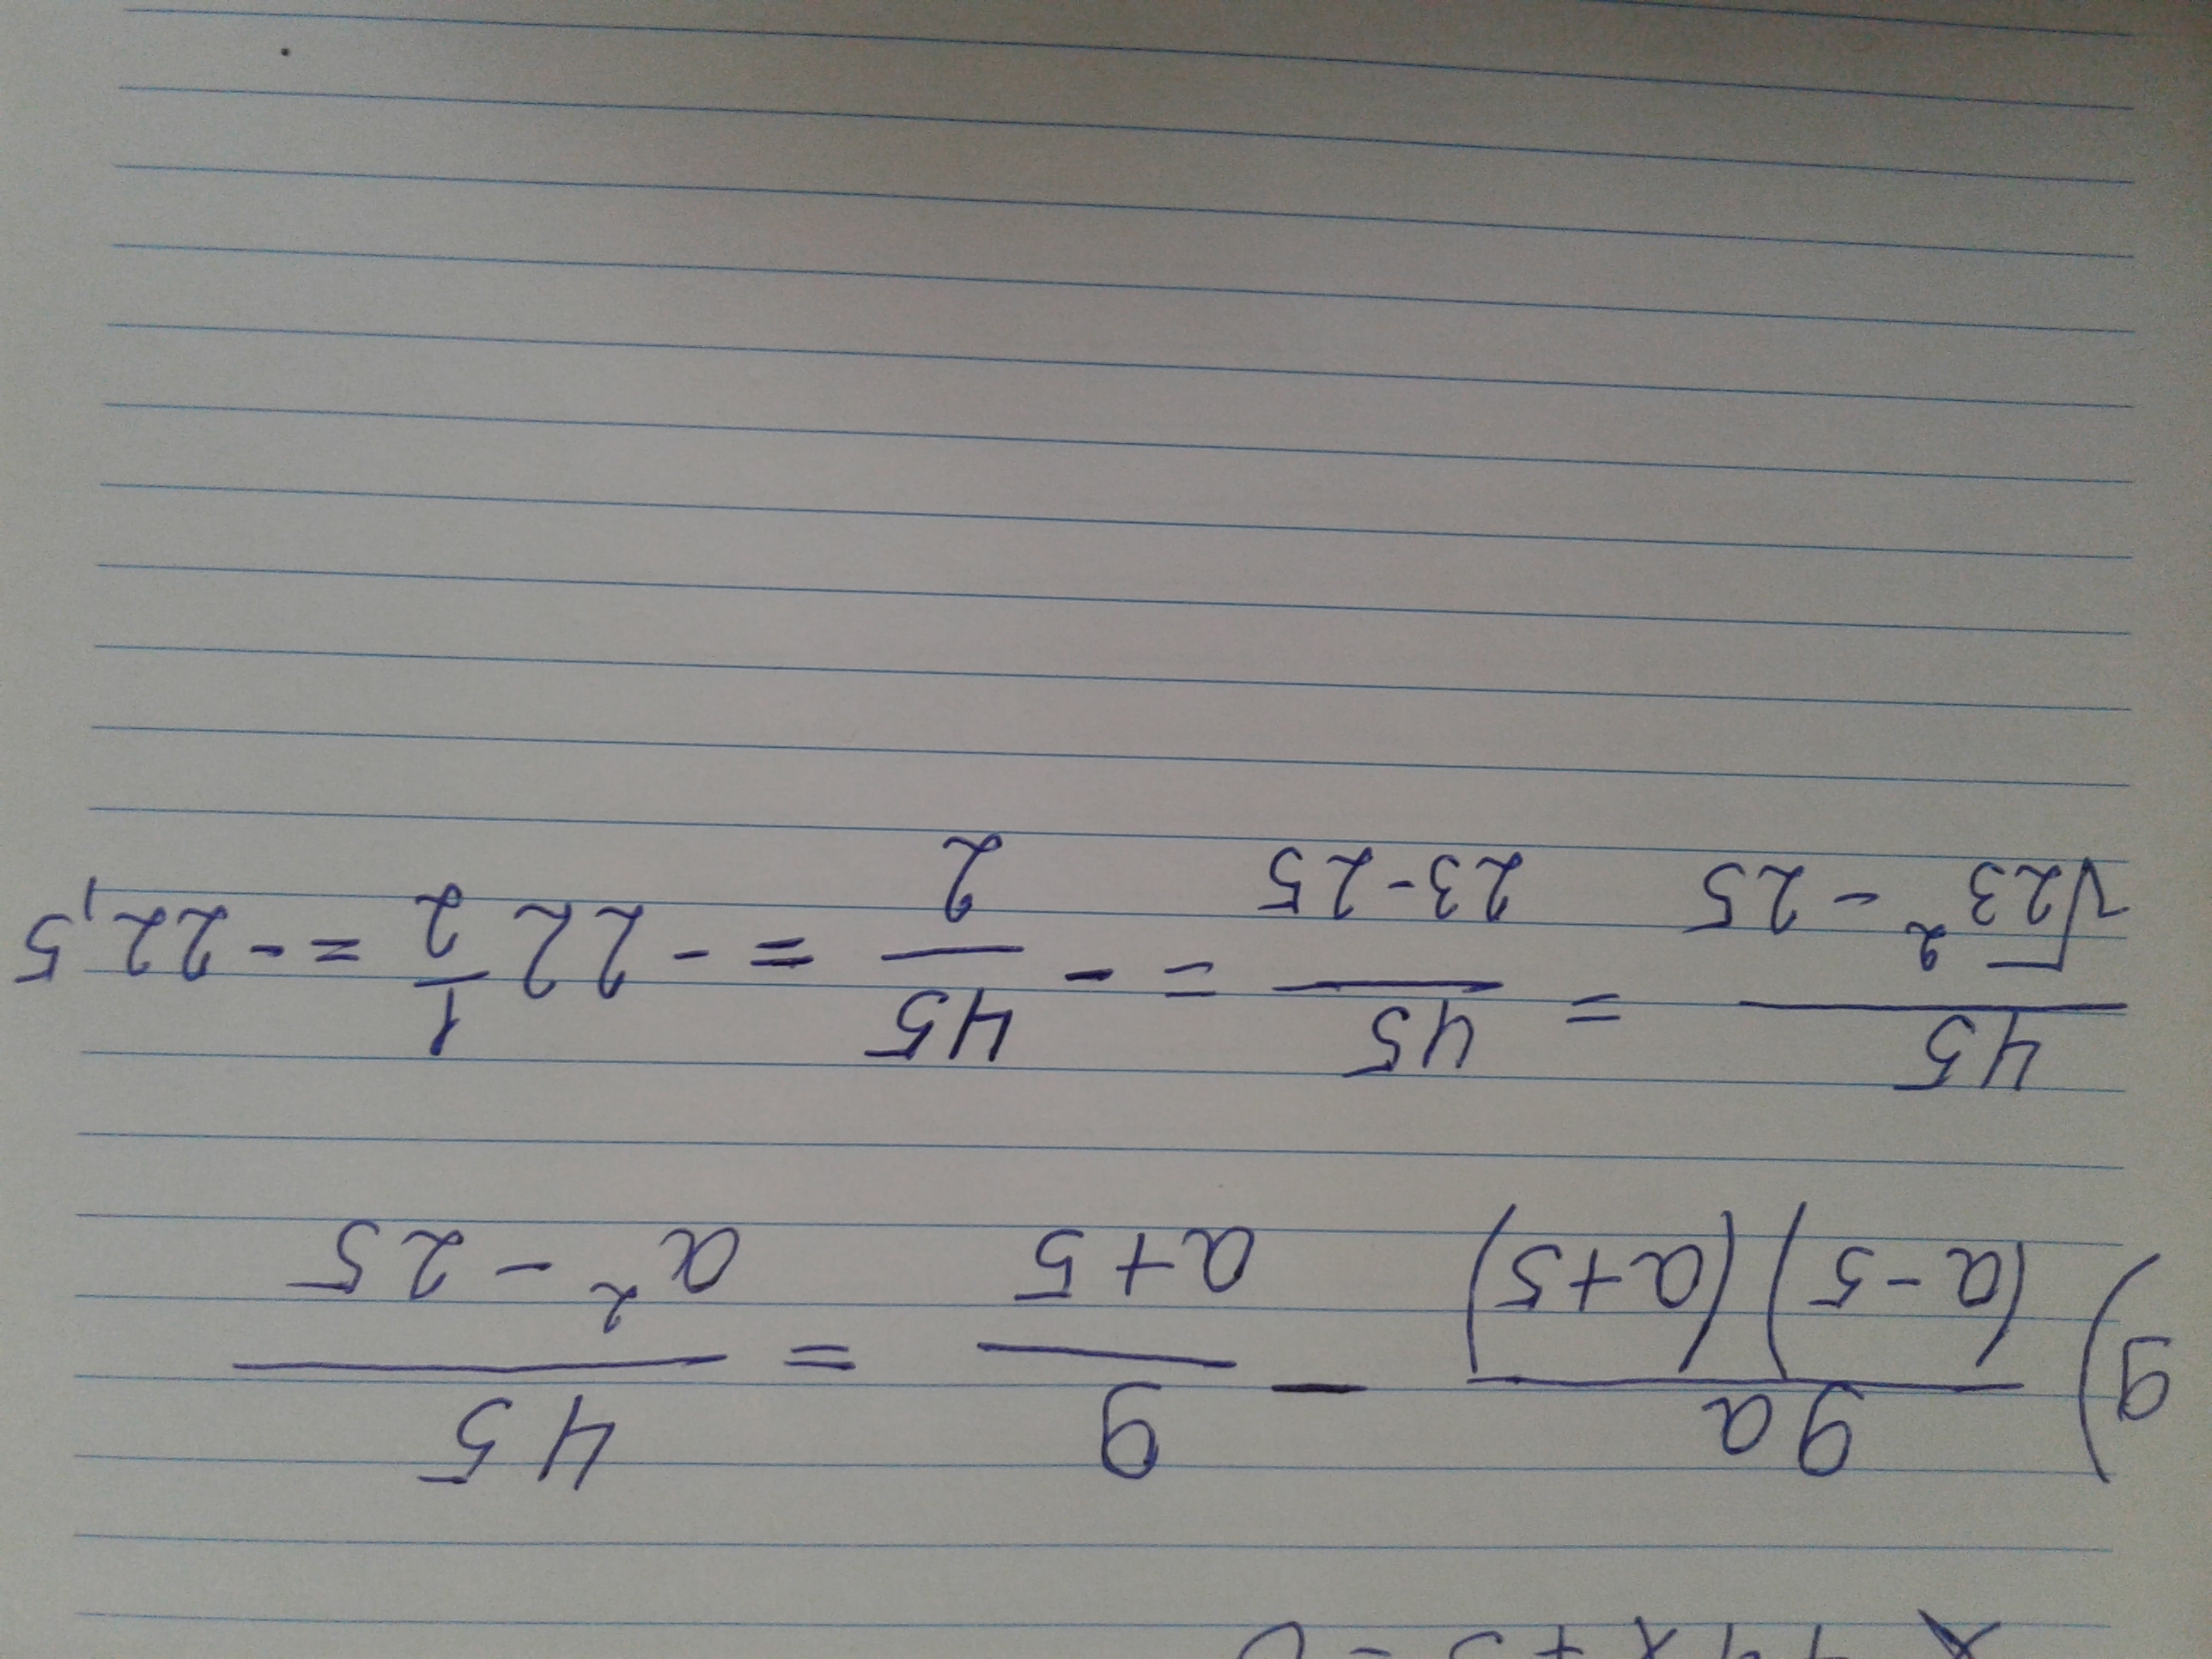 x + 4x + 5 = 0
9) 9a/((a-5)(a+5)) - 9/(a+5) = 45/(a² - 25)
45/(√23² - 25) = 45/(23-25) = - 45/2 = - 22 1/2 = - 22,5